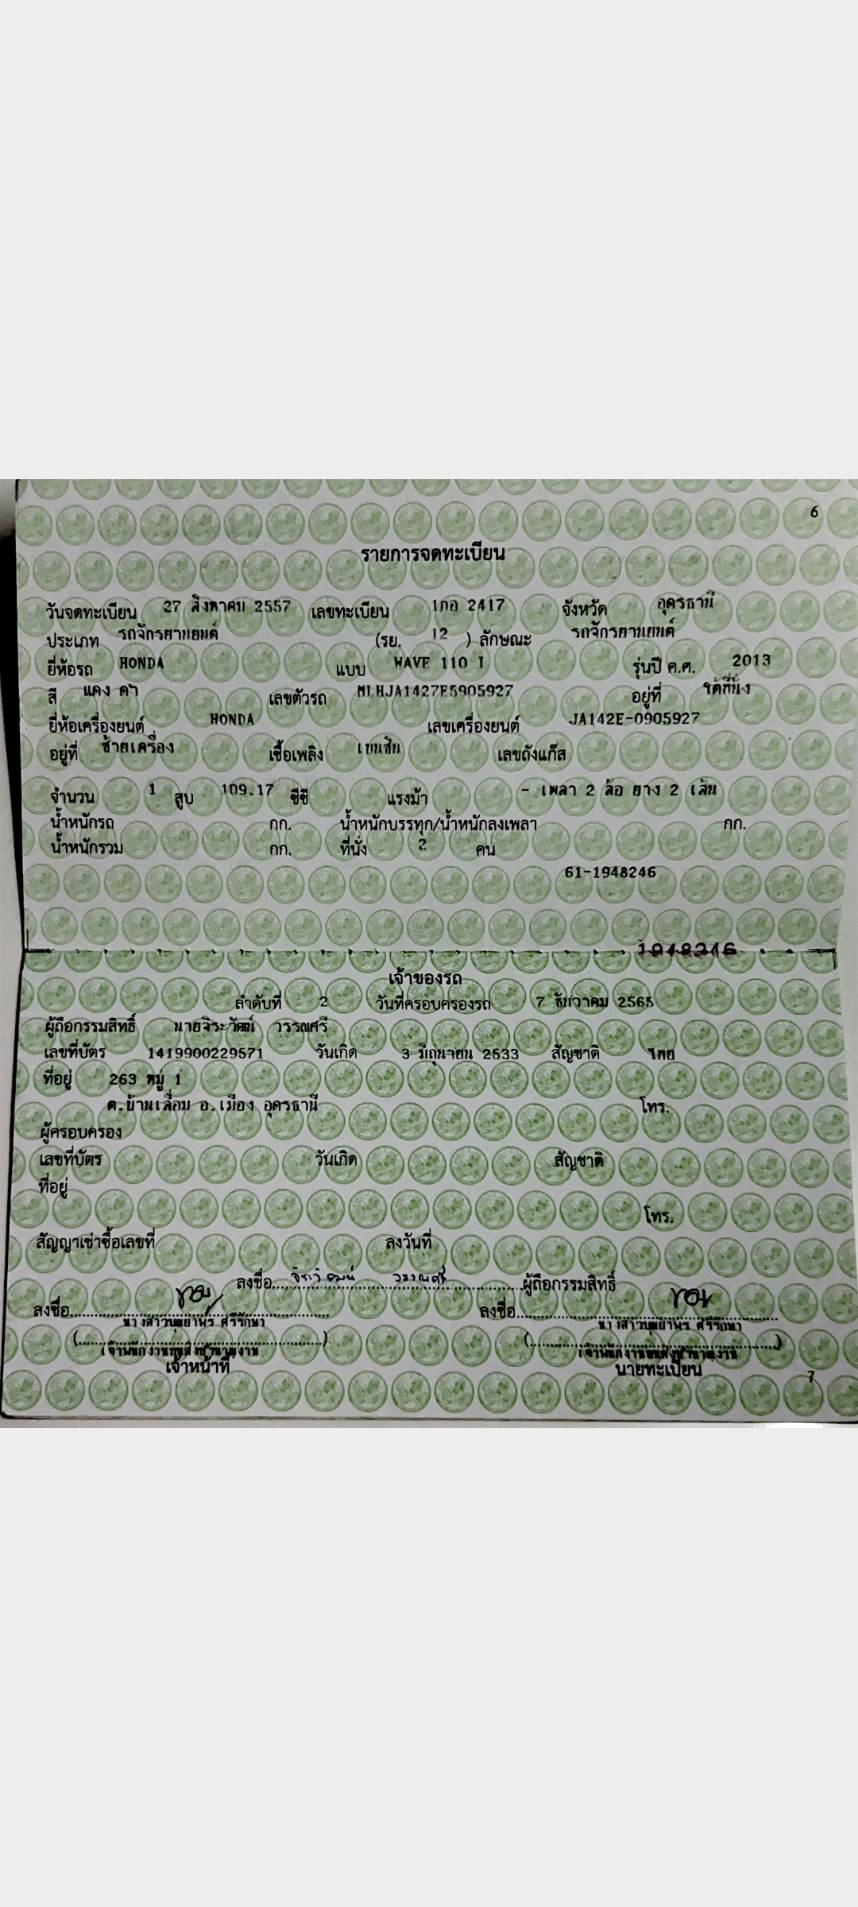 6
รายการจดทะเบียน
วันจดทะเบียน 27 สิงหาคม 2557 เลขทะเบียน 1กอ 2417 จังหวัด อุดรธานี
ประเภท รถจักรยานยนต์ (รย. 12 ) ลักษณะ รถจักรยานยนต์
ยี่ห้อรถ HONDA แบบ WAVE 110 I รุ่นปี ค.ศ. 2013
สี แดง ดำ เลขตัวรถ MLHJA1427E5905927 อยู่ที่ ใต้ที่นั่ง
ยี่ห้อเครื่องยนต์ HONDA เลขเครื่องยนต์ JA142E-0905927
อยู่ที่ ซ้ายเครื่อง เชื้อเพลิง เบนซิน เลขถังแก๊ส
จำนวน 1 สูบ 109.17 ซีซี แรงม้า - เพลา 2 ล้อ ยาง 2 เส้น
น้ำหนักรถ กก. น้ำหนักบรรทุก/น้ำหนักลงเพลา กก.
น้ำหนักรวม กก. ที่นั่ง 2 คน
61-1948246
1948246
เจ้าของรถ
ลำดับที่ 2 วันที่ครอบครองรถ 7 ธันวาคม 2565
ผู้ถือกรรมสิทธิ์ นายจิระวัฒน์ วรรณศรี
เลขที่บัตร 1419900229571 วันเกิด 3 มิถุนายน 2533 สัญชาติ ไทย
ที่อยู่ 263 หมู่ 1
ต.บ้านเลื่อม อ.เมือง อุดรธานี โทร.
ผู้ครอบครอง
เลขที่บัตร วันเกิด สัญชาติ
ที่อยู่
โทร.
สัญญาเช่าซื้อเลขที่ ลงวันที่
ลงชื่อ จิระวัฒน์ วรรณศรี ผู้ถือกรรมสิทธิ์
ลงชื่อ ลงชื่อ
ศรีรักษา ศรีรักษา
เจ้าพนักงานขนส่งชำนาญงาน เจ้าพนักงานขนส่งชำนาญงาน
เจ้าหน้าที่ นายทะเบียน
7